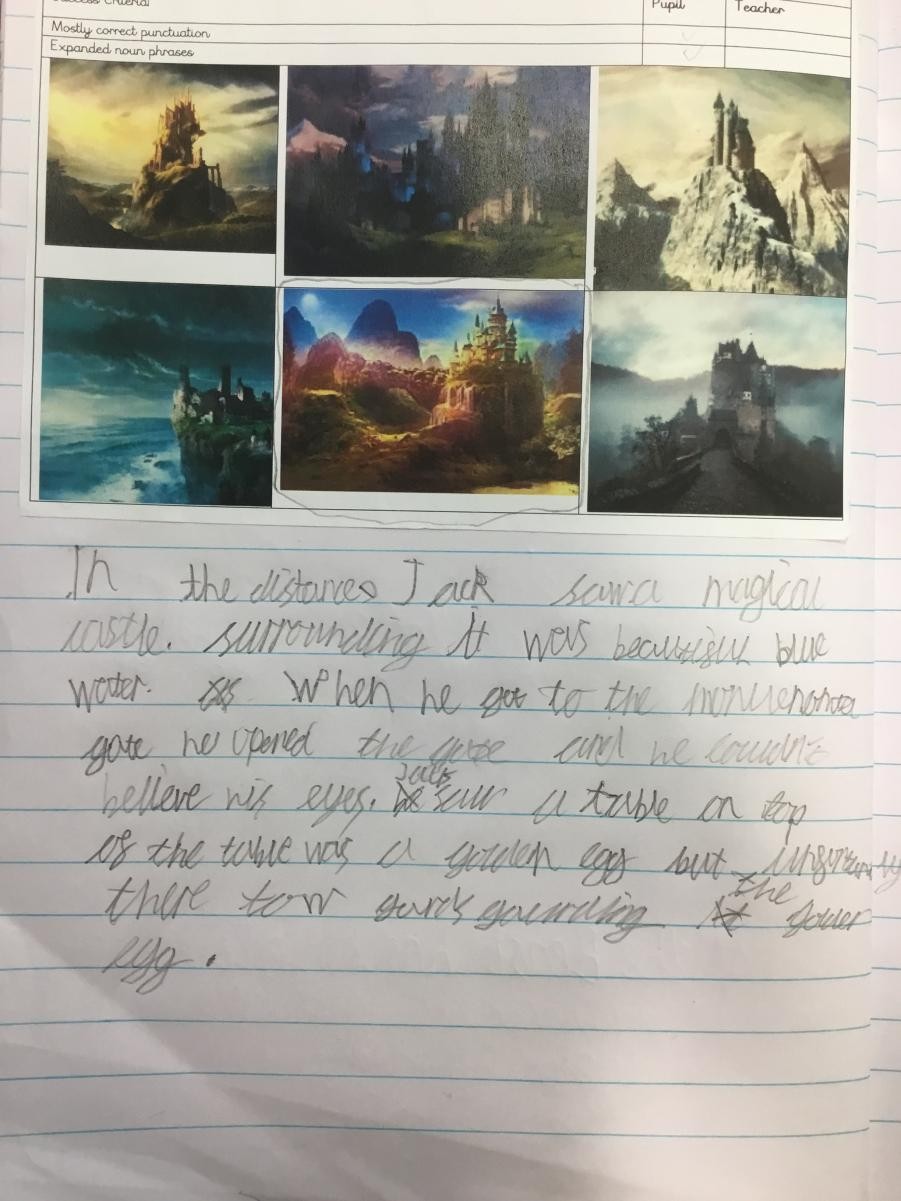 Success Criteria Pupil Teacher
Mostly correct punctuation
Expanded noun phrases
In the distances Jack saw a magical
castle. surrounding it was beautiful blue
water. When he got to the
gate he opened the gate and he couldn't
believe his eyes. Jack saw a table on top
of the table was a golden egg but
there tow guards the
egg.